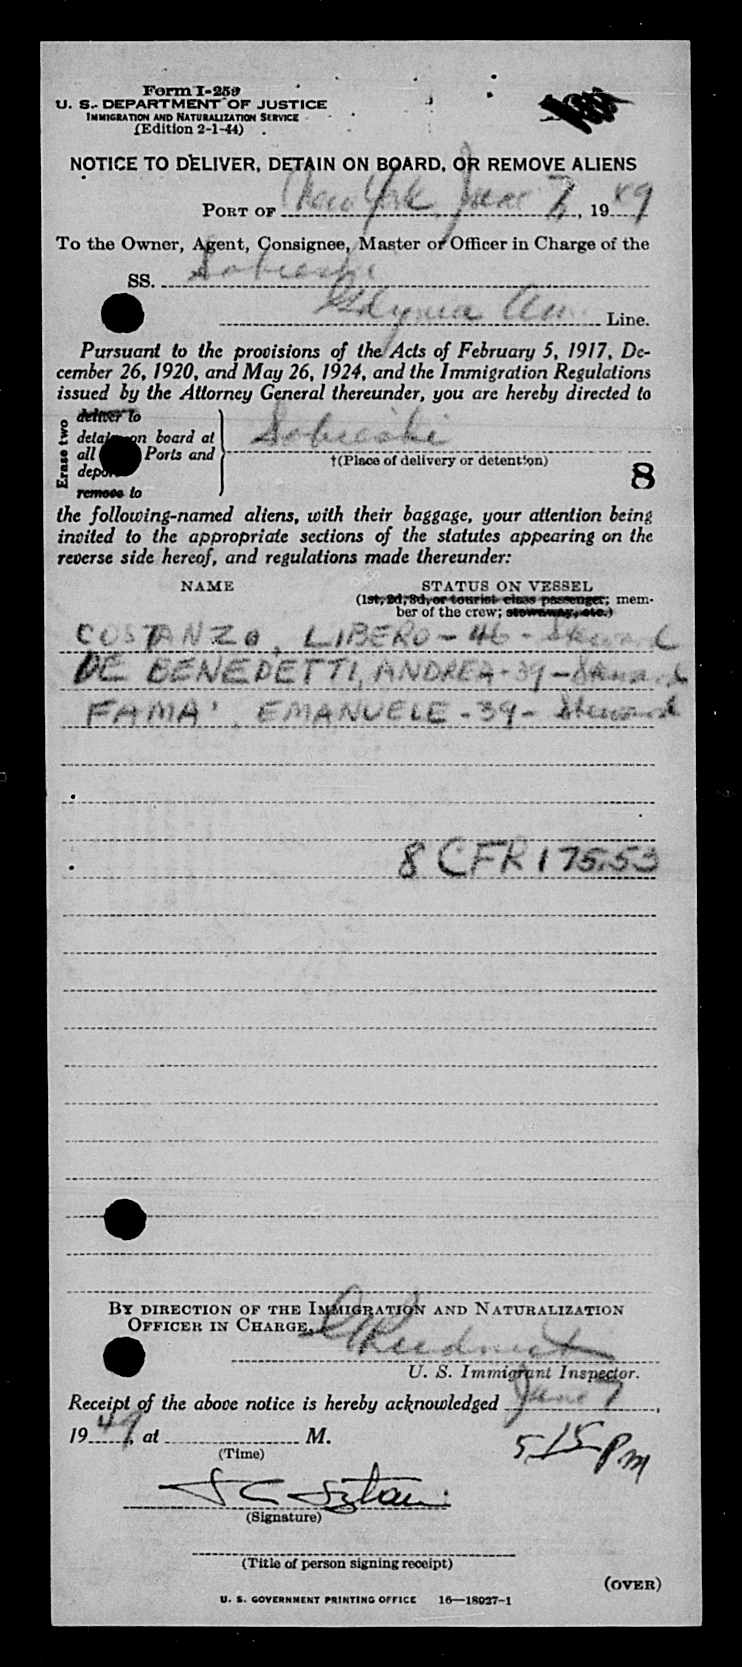 Form I-259
U. S. DEPARTMENT OF JUSTICE
IMMIGRATION AND NATURALIZATION SERVICE
(Edition 2-1-44)
NOTICE TO DELIVER, DETAIN ON BOARD, OR REMOVE ALIENS
PORT OF New York, June 7, 1949
To the Owner, Agent, Consignee, Master or Officer in Charge of the
SS. Sobieski
Gdynia Am. Line.
Pursuant to the provisions of the Acts of February 5, 1917, De-
cember 26, 1920, and May 26, 1924, and the Immigration Regulations
issued by the Attorney General thereunder, you are hereby directed to
Erase two
deliver to
detain on board at
all Ports and
deport
remove to
Sobieski
†(Place of delivery or detention)
8
the following-named aliens, with their baggage, your attention being
invited to the appropriate sections of the statutes appearing on the
reverse side hereof, and regulations made thereunder:
NAME STATUS ON VESSEL
(1st, 2d, 3d, or tourist class passenger; mem-
ber of the crew; stowaway, etc.)
COSTANZO, LIBERO - 46 - Steward
DE BENEDETTI, ANDREA - 39 - Steward
FAMA', EMANUELE - 39 - Steward
8 CFR 175.53
BY DIRECTION OF THE IMMIGRATION AND NATURALIZATION
OFFICER IN CHARGE,
U. S. Immigrant Inspector.
Receipt of the above notice is hereby acknowledged June 7,
1949, at M.
5 15 Pm
(Time)
(Signature)
(Title of person signing receipt)
(OVER)
U. S. GOVERNMENT PRINTING OFFICE 16—18027-1